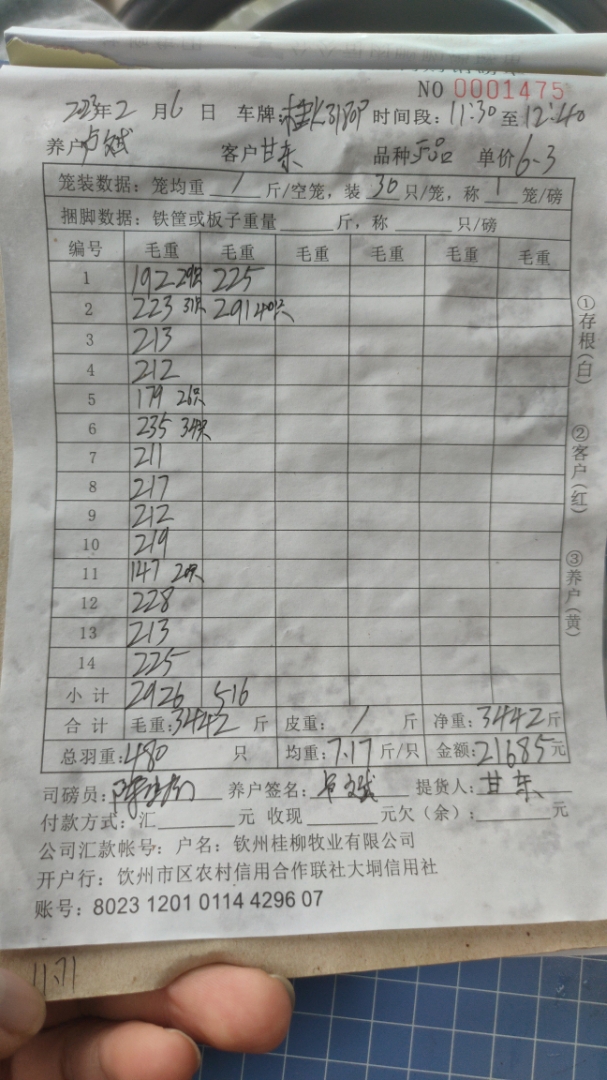 NO 0001475
2023年2月6日 车牌:桂K3180P 时间段:11:30至12:40
养户卢 客户甘东 品种 单价6-3
笼装数据:笼均重 / 斤/空笼,装 30 只/笼,称 1 笼/磅
捆脚数据:铁筐或板子重量 斤,称 只/磅
编号 毛重 毛重 毛重 毛重 毛重 毛重
1 192 29只 225
2 223 31只 291 40只
3 213
4 212
5 179 26只
6 235 34只
7 211
8 217
9 212
10 219
11 147 20只
12 228
13 213
14 225
小计 2926 516
合计 毛重:3442斤 皮重: / 斤 净重:3442斤
总羽重:480 只 均重:7.17斤/只 金额:21685元
司磅员: 养户签名: 提货人:甘东
付款方式:汇 元 收现 元欠(余): 元
公司汇款帐号:户名:钦州桂柳牧业有限公司
开户行:饮州市区农村信用合作联社大垌信用社
账号:8023 1201 0114 4296 07
①存根(白) ②客户(红) ③养户(黄)